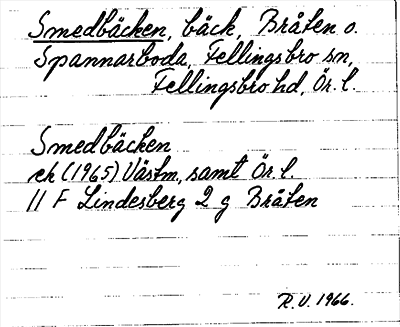 Smedbäcken, bäck, Bråten o.
Spannarboda, Fellingsbro sn,
Fellingsbro hd, Ör. l.
Smedbäcken
ek (1965) Västm, samt Ör. l.
11 F Lindesberg 2 g Bråten
R.V. 1966.